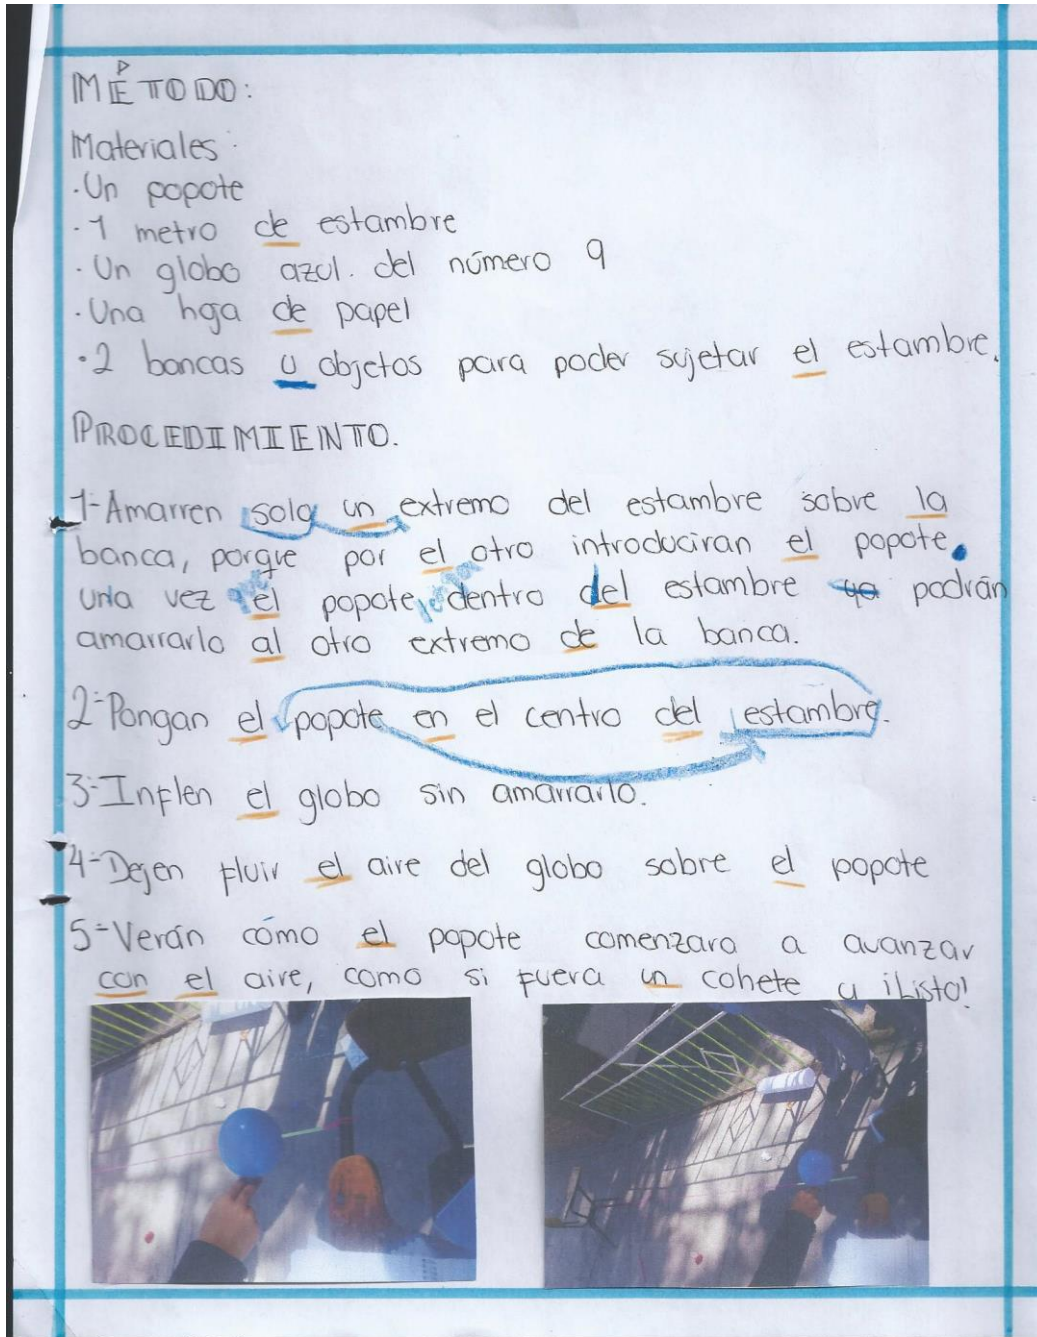 MÉTODO:
Materiales:
·Un popote
·1 metro de estambre
·Un globo azul. del número 9
·Una hoja de papel
·2 bancas u objetos para poder sujetar el estambre.
PROCEDIMIENTO.
1-Amarren solo un extremo del estambre sobre la
banca, porque por el otro introduciran el popote.
una vez el popote, dentro del estambre ya podrán
amarrarlo al otro extremo de la banca.
2-Pongan el popote en el centro del estambre.
3-Inflen el globo sin amarrarlo.
4-Dejen fluir el aire del globo sobre el popote
5-Verán cómo el popote comenzara a avanzar
con el aire, como si fuera un cohete y ¡Listo!